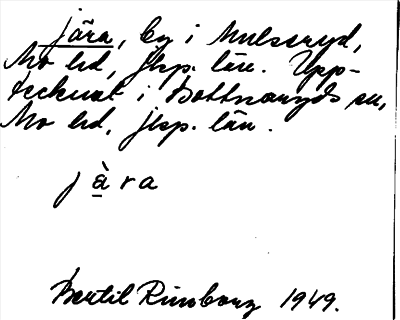 Jära, by i Mulseryd,
Mo hd, Jkp. län. Upp-
tecknat i Bottnaryds sn,
Mo hd, Jkp. län.
j à r a
Bertil Rimborg 1949.